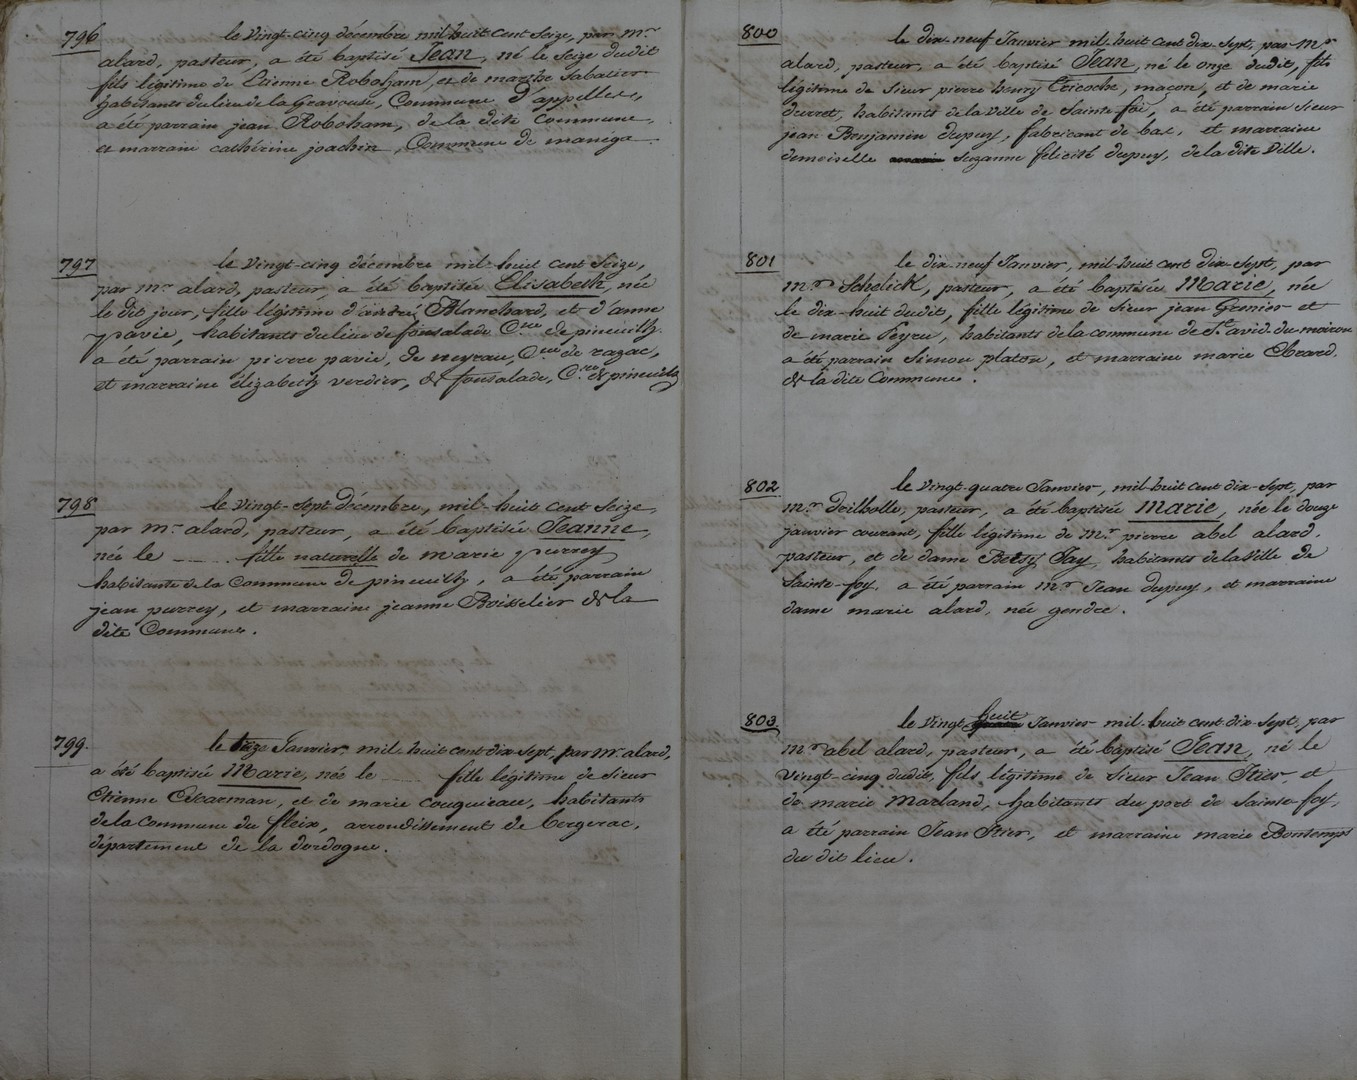 796
le vingt-cinq décembre mil-huit cent seize, par mr
alard, pasteur, a été baptisé Jean, né le seize dudit
fils légitime de Etienne Roboham, et de marthe Sabatier
habitants du lieu de la Gravouse, Commune d'appelles,
a été parrain jean Roboham, de la dite Commune,
et marraine cathérine joachin, Commune de maniga
797
le vingt-cinq décembre mil-huit cent seize,
par mr alard, pasteur, a été baptisée Elisabeth, née
le dit jour, fille légitime d'andré Blanchard, et d'anne
pavie, habitants du lieu de fonsalade Cne de pineuilh.
a été parrain pierre pavie, de neyrau, Cne de razac,
et marraine élizabeth verdier, de fonsalade, Cne de pineuilh
798
le vingt-sept décembre, mil-huit cent seize,
par mr alard, pasteur, a été baptisée Jeanne,
née le ---- fille naturelle de marie purrey
habitante de la Commune de pineuilh, a été parrain
jean purrey, et marraine jeanne Boisselier de la
dite Commune.
799.
le Janvier mil-huit cent dix-sept, par mr alard,
a été baptisée Marie, née le ---- fille légitime de Sieur
Etienne Escarman, et de marie couquieau, habitants
de la Commune du fleix, arrondissement de bergerac,
département de la dordogne.
800
le dix-neuf Janvier mil-huit cent dix-sept, par Mr
alard, pasteur, a été baptisé Jean, né le onze dudit, fils
légitime de Sieur pierre henry Ericoche, maçon, et de marie
durret, habitants de la Ville de Sainte foi, a été parrain sieur
jean Benjamin dupuy, fabricant de bas, et marraine
demoiselle suzanne félicité dupuy, de la dite Ville.
801
le dix-neuf Janvier, mil-huit cent dix-sept, par
mr Schelick, pasteur, a été baptisée Marie, née
le dix-huit dudit, fille légitime de Sieur jean Grenier et
de marie Peyre, habitants de la commune de St avid-du-moiron
a été parrain Simon platon, et marraine marie Ebrard,
de la dite Commune.
802
le vingt-quatre Janvier, mil-huit cent dix-sept, par
mr deilbolle, pasteur, a été baptisée Marie, née le douze
janvier courant, fille légitime de Mr pierre abel alard,
pasteur, et de dame Betsy Fay, habitants de la Ville de
Sainte-foy. a été parrain mr Jean dupuy, et marraine
dame marie alard, née gendre.
803.
le vingt huit Janvier mil-huit cent dix-sept, par
mr abel alard, pasteur, a été baptisé Jean, né le
vingt-cinq dudit, fils légitime de sieur Jean Itier, et
de marie Marland, habitants du port de Sainte-foy,
a été parrain Jean Itier, et marraine marie Bontemps
du dit lieu.